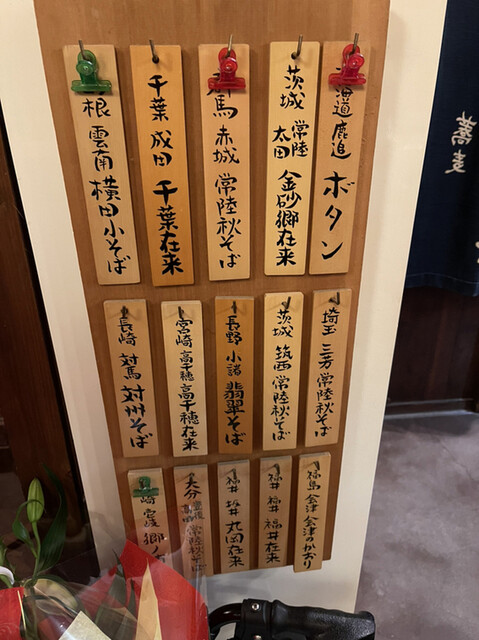 蕎麦
海道 鹿追 ボタン
茨城 常陸太田 金砂郷在来
馬 赤城 常陸秋そば
千葉 成田 千葉在来
根 雲南 横田小そば
埼玉 三芳 常陸秋そば
茨城 筑西 常陸秋そば
長野 小諸 翡翠そば
宮崎 高千穂 高千穂在来
長崎 対馬 対州そば
福島 会津 会津のかおり
福井 福井 福井在来
福井 坂井 丸岡在来
大分 常陸秋そば
崎 郷ノ